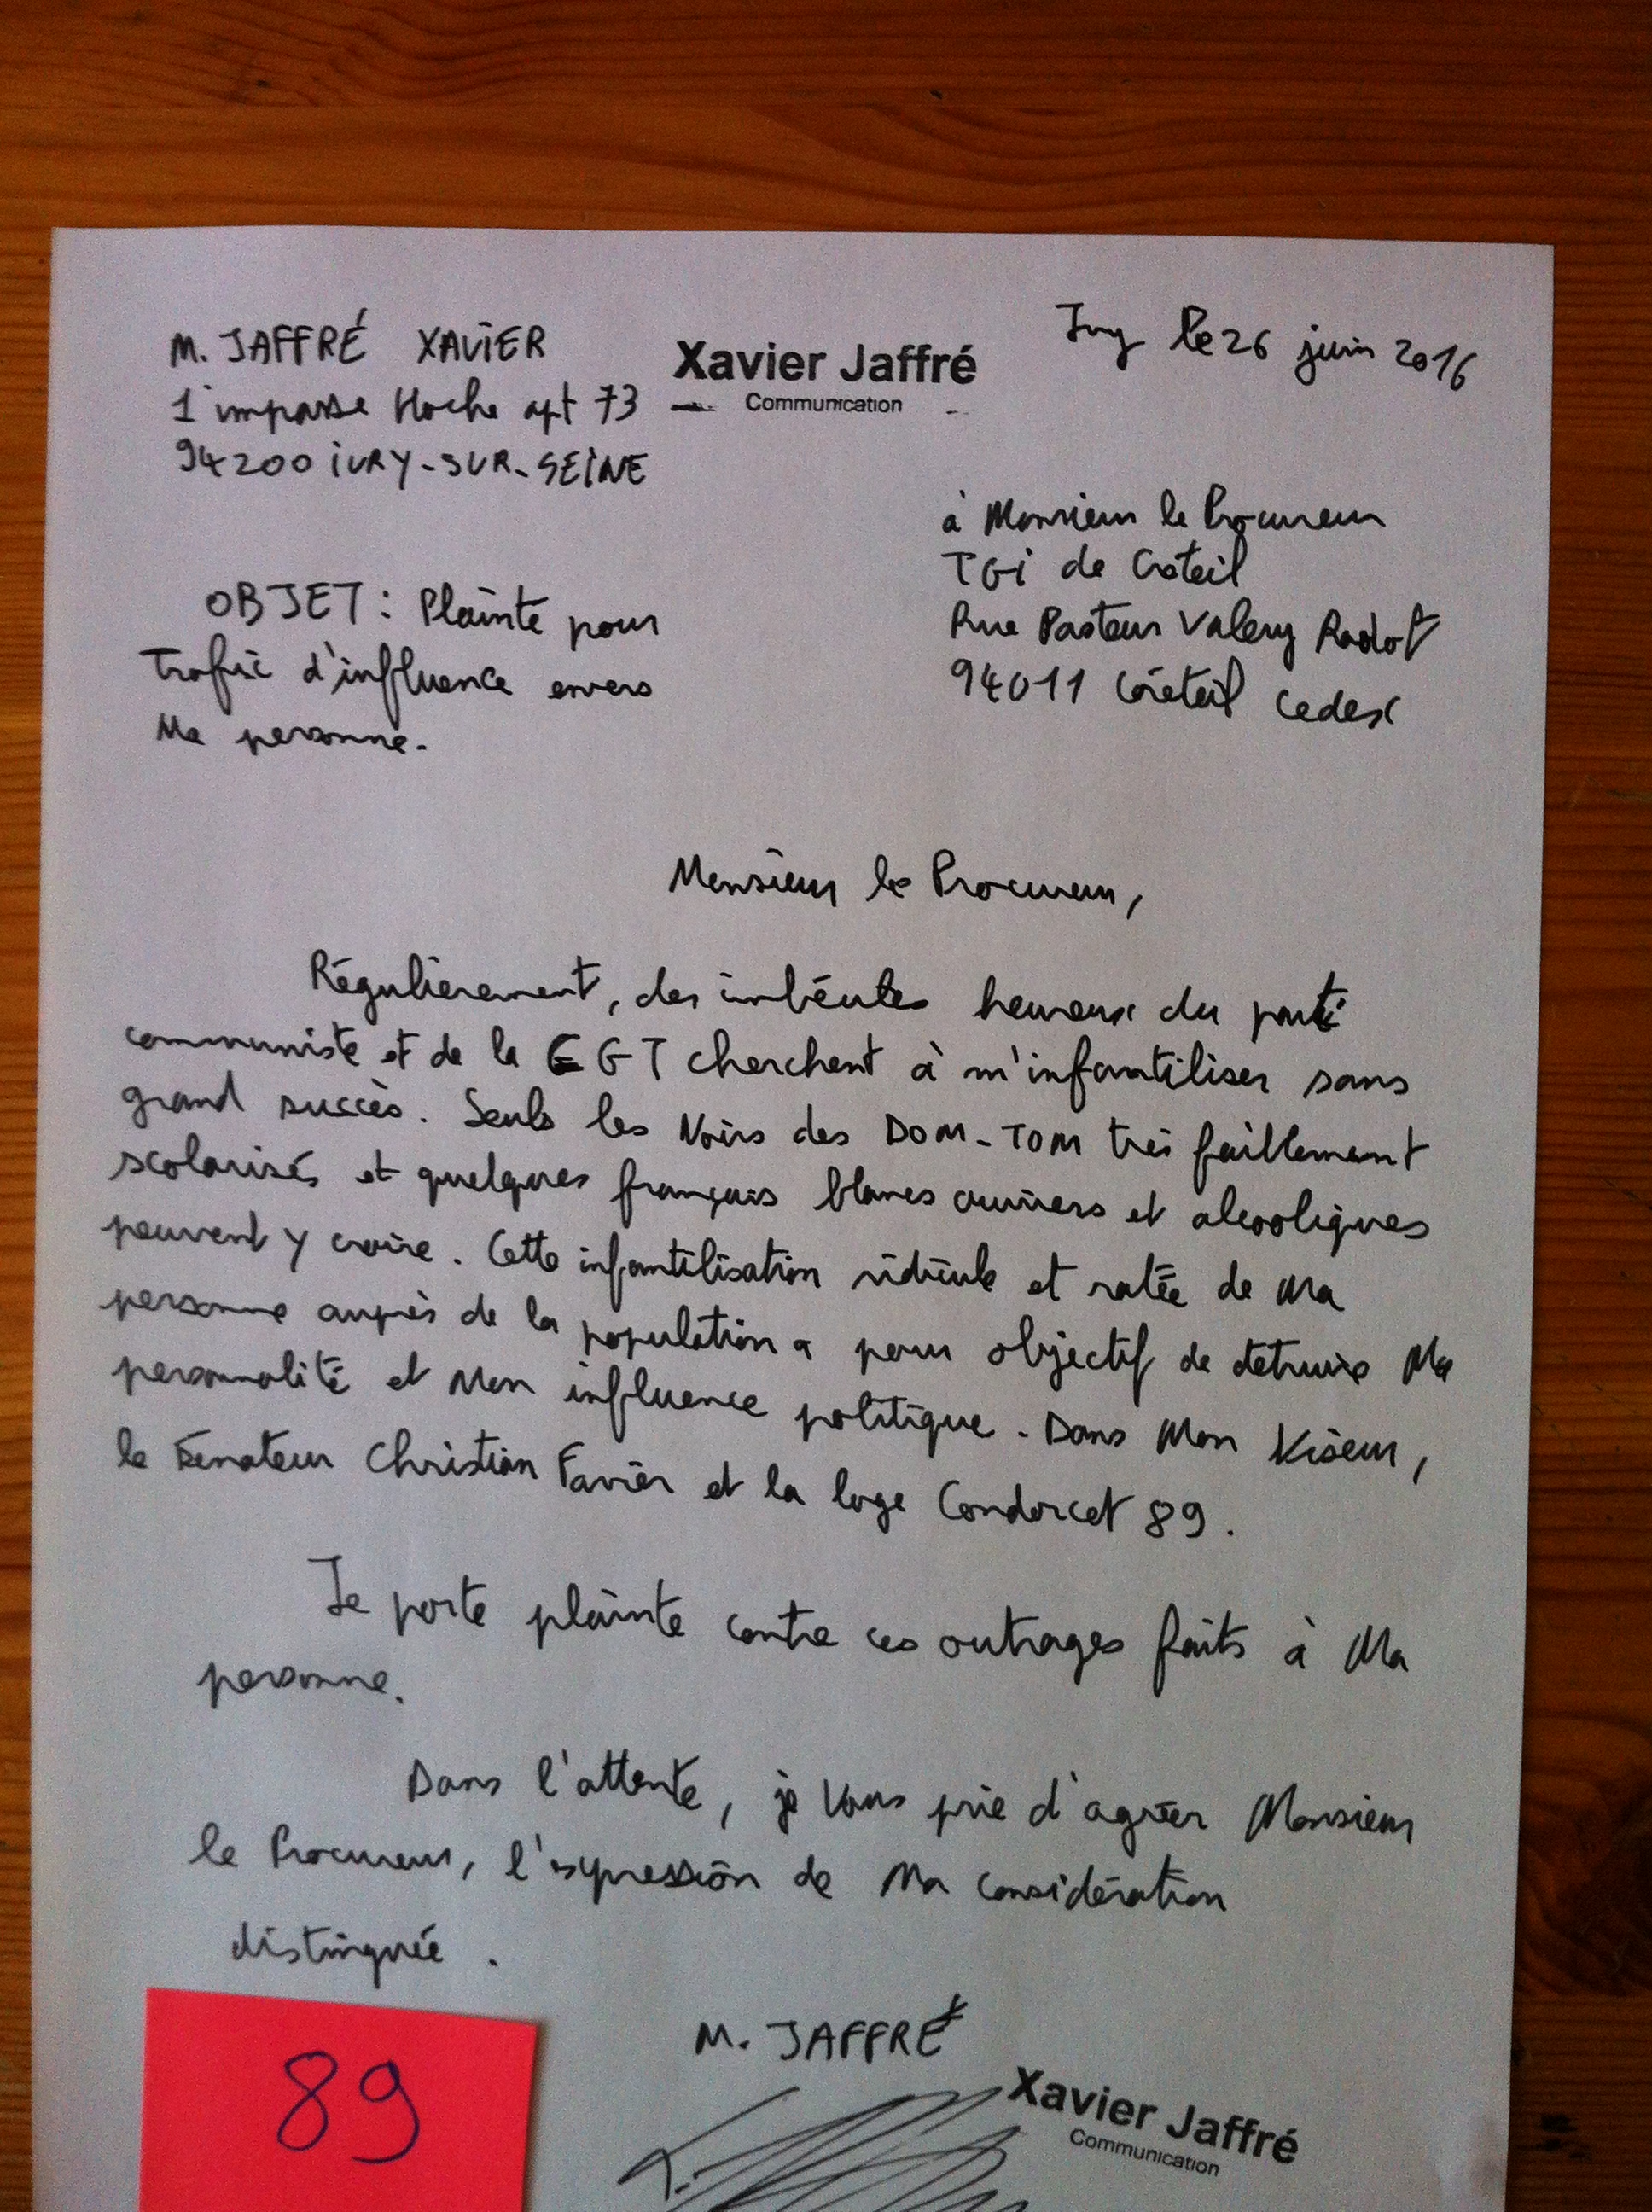 M. JAFFRÉ XAVIER
1 impasse Hoche apt 73
94200 IVRY-SUR-SEINE
Xavier Jaffré
Communication
Ivry le 26 juin 2016
à Monsieur le Procureur
TGI de Créteil
Rue Pasteur Valery Radot
94011 Créteil Cedex
OBJET: Plainte pour
trafic d'influence envers
Ma personne.
Monsieur le Procureur,
Régulièrement, des imbéciles heureux du parti
communiste et de la CGT cherchent à m'infantiliser sans
grand succès. Seuls les Noirs des DOM-TOM très faiblement
scolarisés et quelques français blancs ouvriers et alcooliques
peuvent y croire. Cette infantilisation ridicule et ratée de Ma
personne auprès de la population a pour objectif de détruire Ma
personnalité et Mon influence politique. Dans Mon Viseur,
le Sénateur Christian Favier et la loge Condorcet 89.
Je porte plainte contre ces outrages faits à Ma
personne.
Dans l'attente, je Vous prie d'agréer Monsieur
le Procureur, l'expression de Ma considération
distinguée.
M. JAFFRÉ
Xavier Jaffré
Communication
89